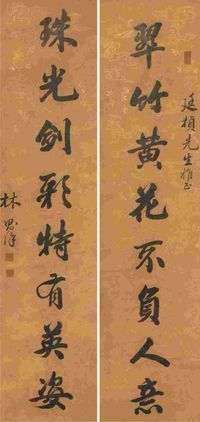 廷楨先生雅正
翠竹黃花不負人意
珠光劍彩特有英姿
林則徐